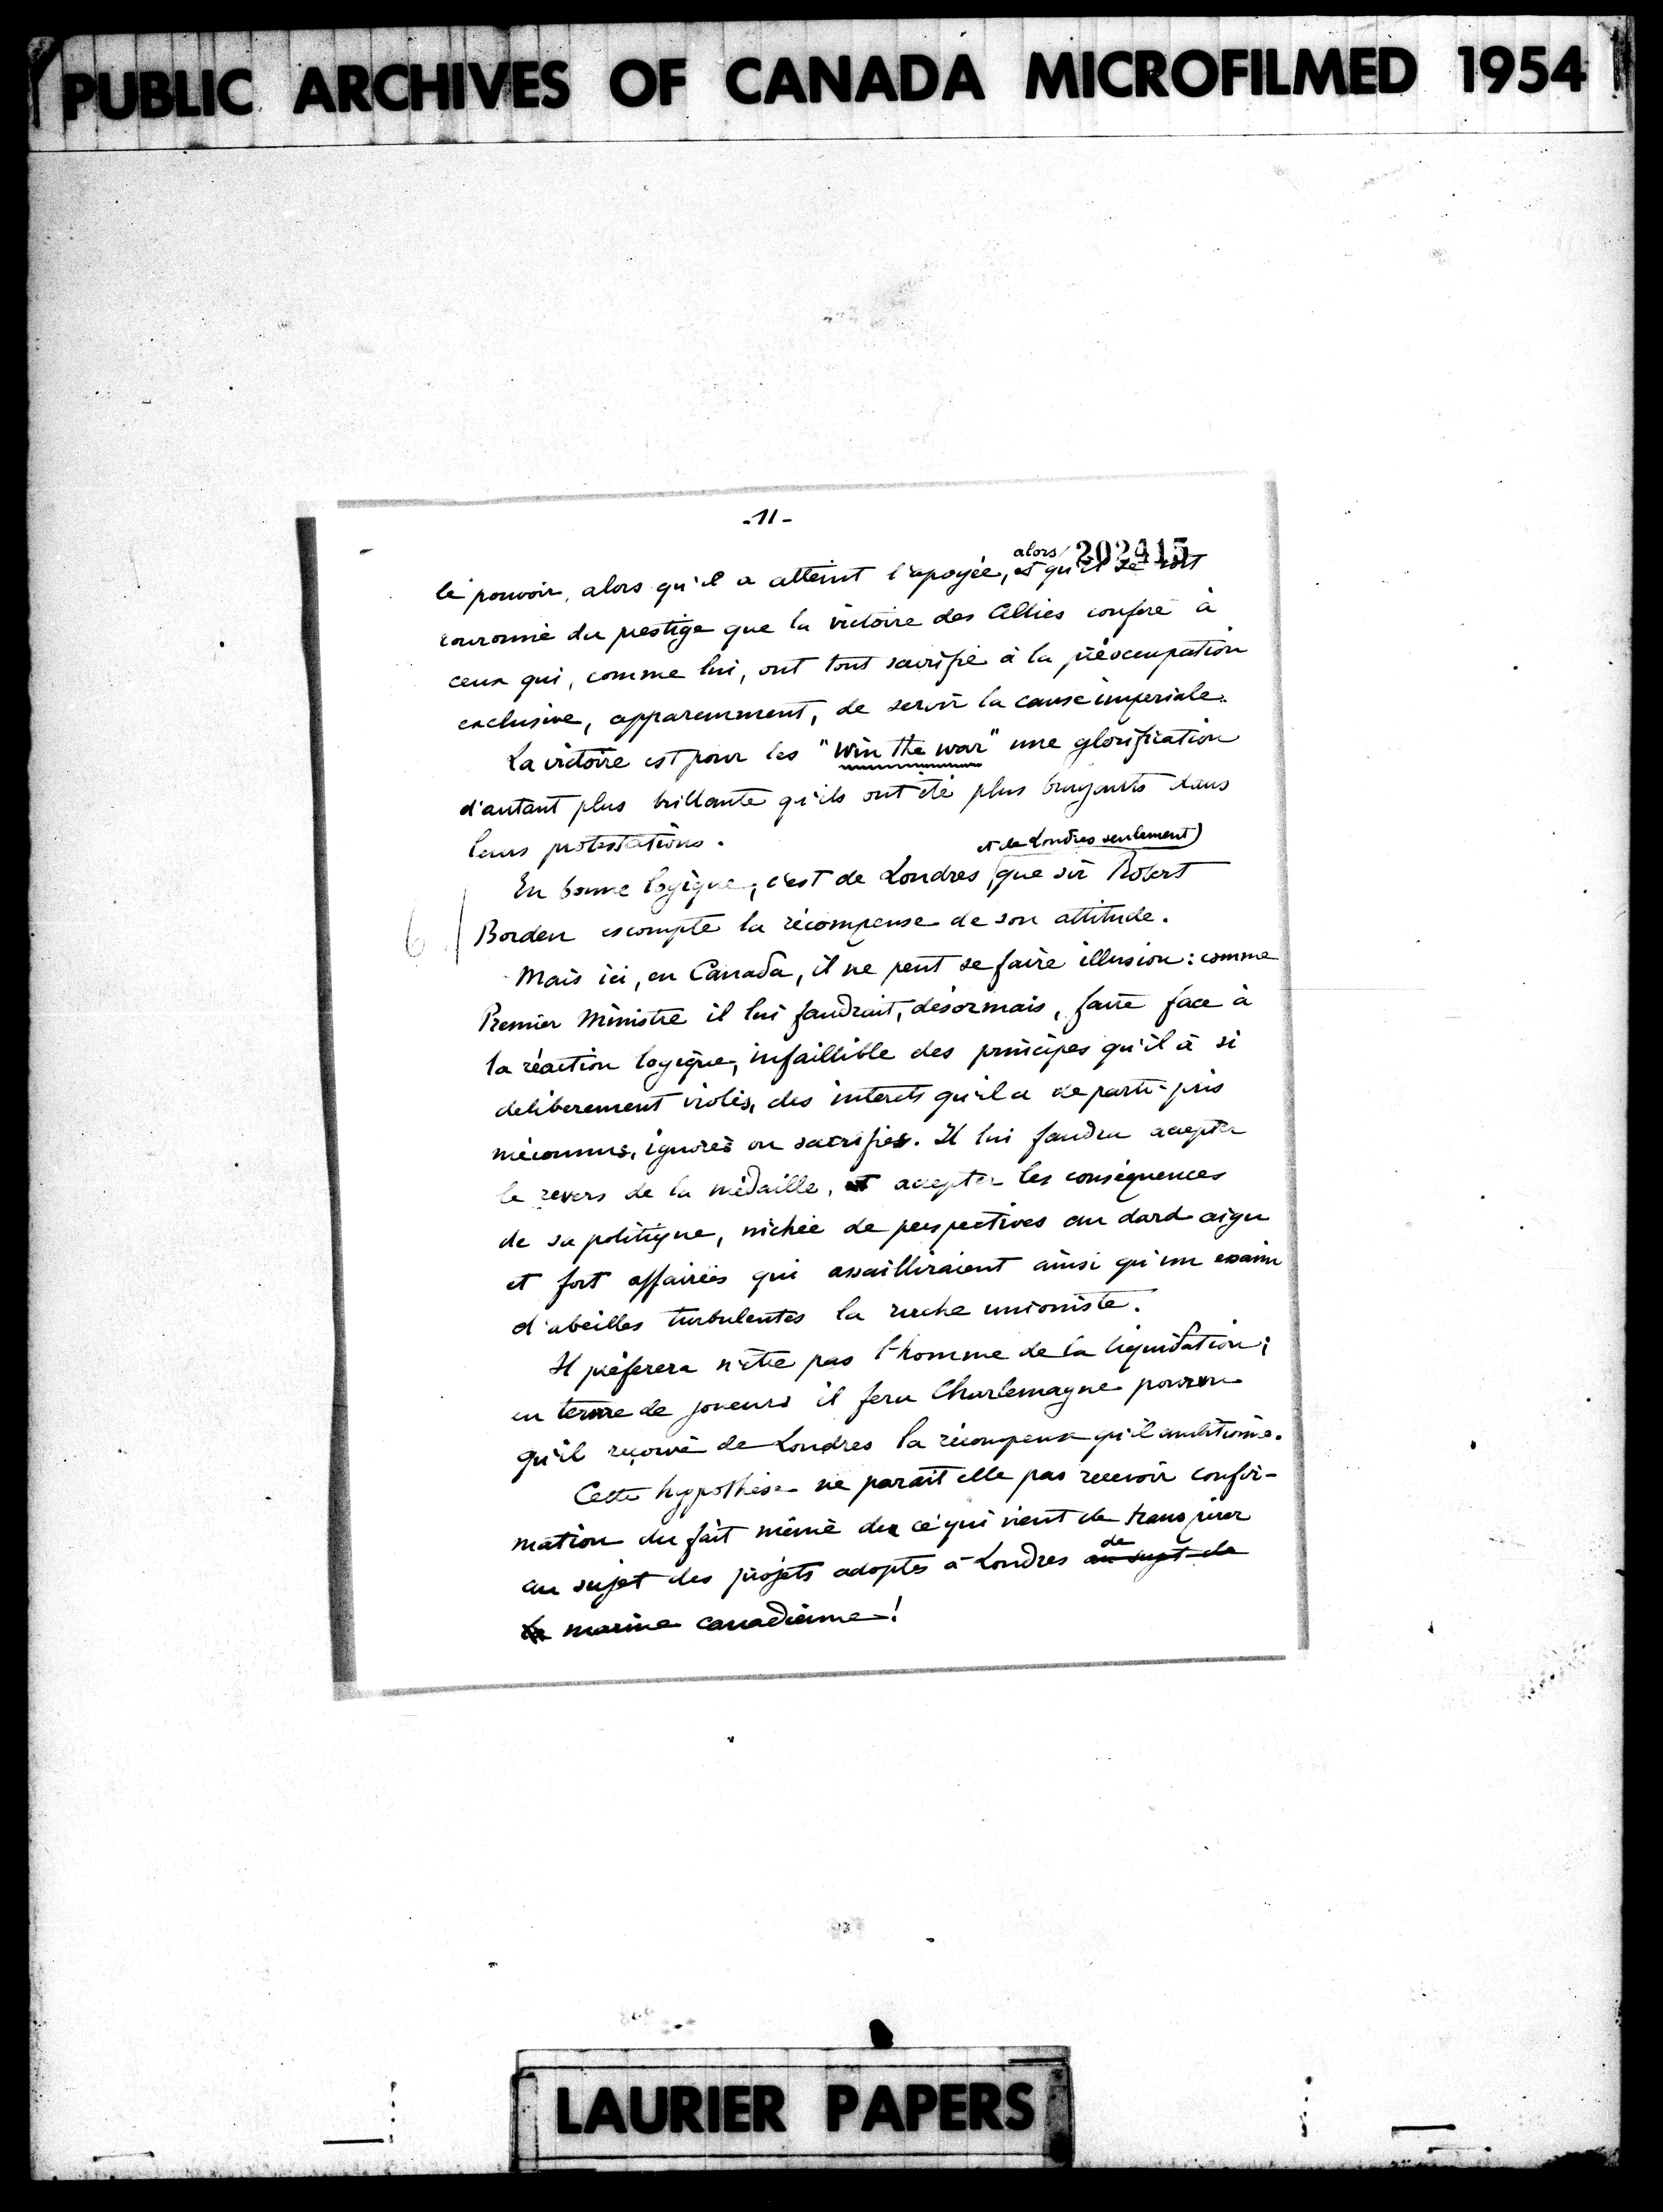 PUBLIC ARCHIVES OF CANADA MICROFILMED 1954
-11-
202415
alors
le pouvoir, alors qu'il a atteint l'apogée, et qu'il se voit
couronné du prestige que la victoire des Alliés confère à
ceux qui, comme lui, ont tout sacrifié à la préoccupation
exclusive, apparemment, de servir la cause imperiale.
La victoire est pour les "Win the war" une glorification
d'autant plus brillante qu'ils ont été plus bruyants dans
leurs protestations.
et de Londres seulement)
En bonne logique, c'est de Londres que sir Robert
6 Borden escompte la récompense de son attitude.
Mais ici, en Canada, il ne peut se faire illusion: comme
Premier Ministre il lui faudrait, désormais, faire face à
la réaction logique, infaillible des principes qu'il a si
deliberement violés, des interets qu'il a de parti-pris
méconnus, ignorés ou sacrifiés. Il lui faudra accepter
le revers de la médaille, et accepter les conséquences
de sa politique, nichée de perspectives au dard aigu
et fort affairées qui assailliraient ainsi qu'un essaim
d'abeilles turbulentes la ruche unioniste.
Il préferera n'être pas l'homme de la liquidation;
en terme de joueurs il fera Charlemagne pourvu
qu'il reçoive de Londres la récompense qu'il ambitionne.
Cette hypothèse ne parait elle pas recevoir confir-
mation du fait même de ce qui vient de transpirer
de
au sujet des projets adoptés à Londres au sujet de
la marine canadienne!
LAURIER PAPERS